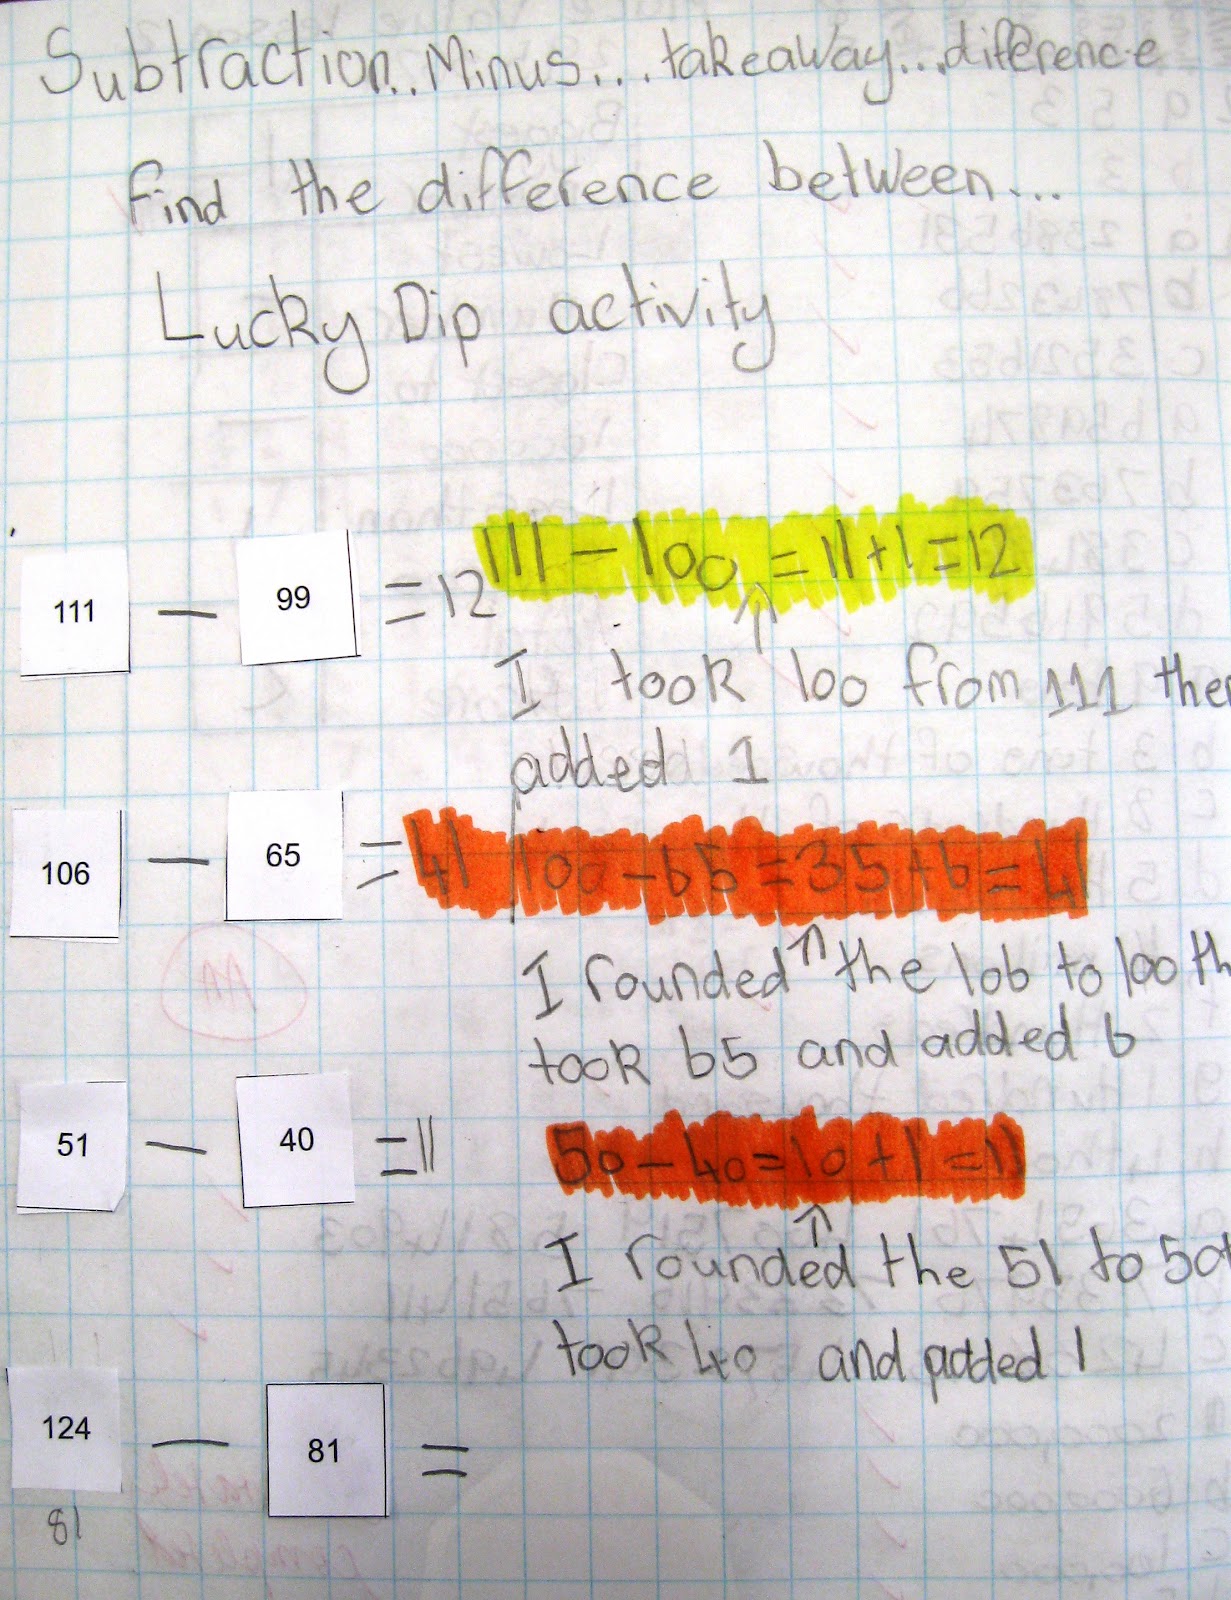 Subtraction..Minus...takeaway...diference
find the difference between...
Lucky Dip activity
111 – 99 = 12 111 – 100 = 11 + 1 = 12
I took 100 from 111 then
added 1
106 – 65 = 41 100 – 65 = 35 + 6 = 41
I rounded the 106 to 100 th
took 65 and added 6
51 – 40 = 11 50 – 40 = 10 + 1 = 11
I rounded the 51 to 50
took 40 and added 1
124 – 81 =
81